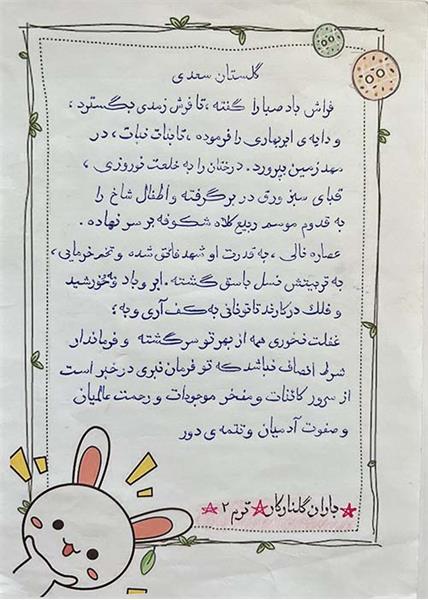 گلستان سعدی
فراش باد صبا را گفته ، تا فرش زمردی بگسترد ،
و دایه ی ابر بهاری را فرموده ، تا بنات نبات ، در
مهد زمین بپرورد . درختان را به خلعت نوروزی ،
قبای سبز ورق در بر گرفته و اطفال شاخ را
به قدوم موسم ربیع کلاه شکوفه بر سر نهاده .
عصاره نالی ، به قدرت او شهد فائق شده و تخم خرمایی ،
به تربیتش نسل باسق گشته . ابر و باد و مه خورشید
و فلک در کارند تا تو نانی به کف آری و به ؛
غفلت نخوری همه از بهر تو سرگشته و فرماندار
شرط انصاف نباشد که تو فرمان نبری در خبر است
از سرور کائنات و مفخر موجودات و رحمت عالمیان
و صفوت آدمیان و تتمه ی دور
باران گلنارکار ترم ۲